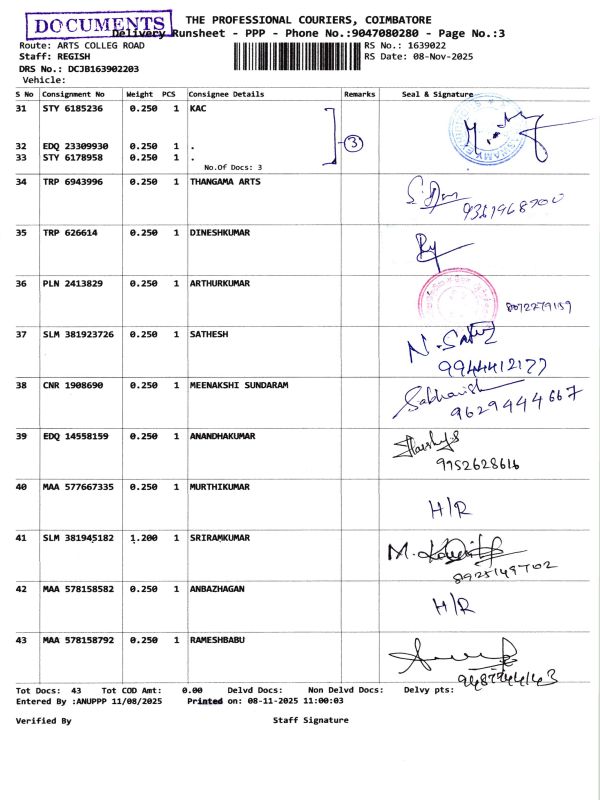 DOCUMENTS
THE PROFESSIONAL COURIERS, COIMBATORE
Delivery Runsheet - PPP - Phone No.:9047080280 - Page No.:3
Route: ARTS COLLEG ROAD RS No.: 1639022
Staff: REGISH RS Date: 08-Nov-2025
DRS No.: DCJB163902203
Vehicle:
S No Consignment No Weight PCS Consignee Details Remarks Seal & Signature
31 STY 6185236 0.250 1 KAC
32 EDQ 23309930 0.250 1 .
3
33 STY 6178958 0.250 1 .
No.Of Docs: 3
34 TRP 6943996 0.250 1 THANGAMA ARTS
35 TRP 626614 0.250 1 DINESHKUMAR
36 PLN 2413829 0.250 1 ARTHURKUMAR
37 SLM 381923726 0.250 1 SATHESH
9944412177
38 CNR 1908690 0.250 1 MEENAKSHI SUNDARAM
9629444667
39 EDQ 14558159 0.250 1 ANANDHAKUMAR
9952628616
40 MAA 577667335 0.250 1 MURTHIKUMAR
H/R
41 SLM 381945182 1.200 1 SRIRAMKUMAR
8925149702
42 MAA 578158582 0.250 1 ANBAZHAGAN
H/R
43 MAA 578158792 0.250 1 RAMESHBABU
Tot Docs: 43 Tot COD Amt: 0.00 Delvd Docs: Non Delvd Docs: Delvy pts:
Entered By :ANUPPP 11/08/2025 Printed on: 08-11-2025 11:00:03
Verified By Staff Signature